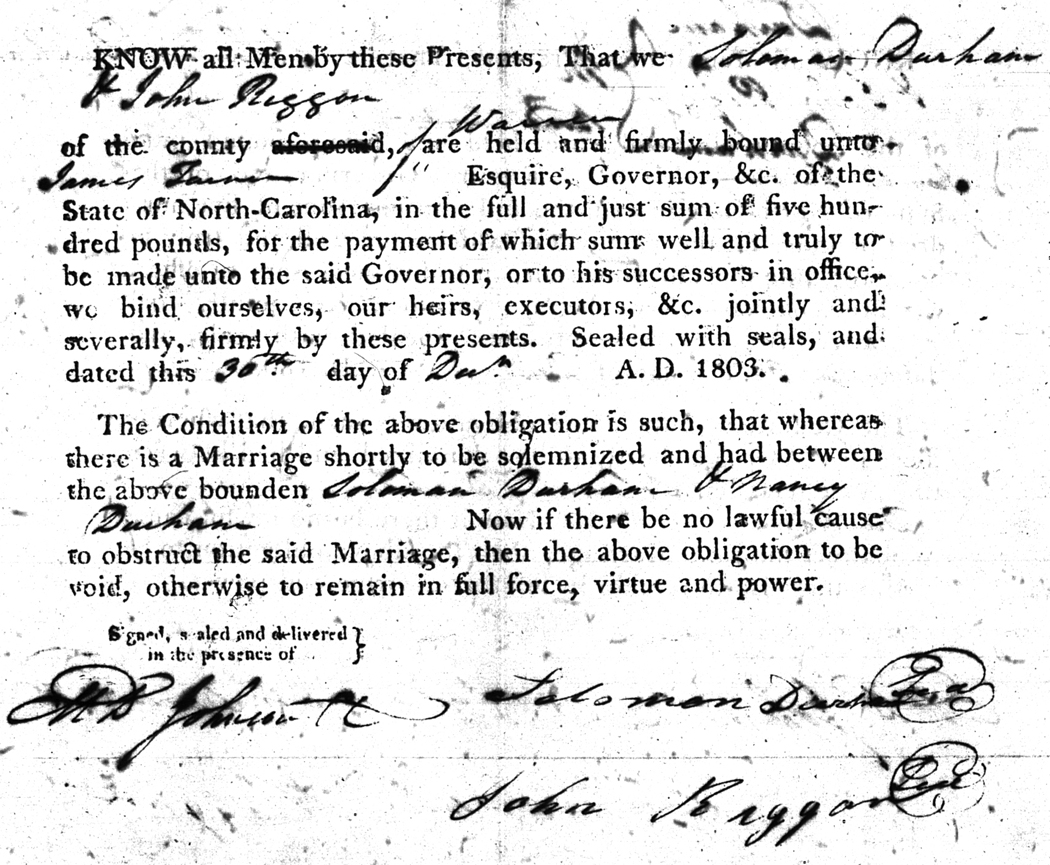 KNOW all Men by these Presents, That we Soloman Durham
& John Reggon
of the county aforesaid, Warren are held and firmly bound unto
James Turner Esquire, Governor, &c. of the
State of North-Carolina, in the full and just sum of five hun-
dred pounds, for the payment of which sum well and truly to
be made unto the said Governor, or to his successors in office,
we bind ourselves, our heirs, executors, &c. jointly and
severally, firmly by these presents. Sealed with seals, and
dated this 30th day of Decr A. D. 1803.
The Condition of the above obligation is such, that whereas
there is a Marriage shortly to be solemnized and had between
the above bounden Soloman Durham & Nancy
Durham Now if there be no lawful cause
to obstruct the said Marriage, then the above obligation to be
void, otherwise to remain in full force, virtue and power.
Signed, sealed and delivered
in the presence of
Johnson Solomon Durham Seal
John Reggon Seal